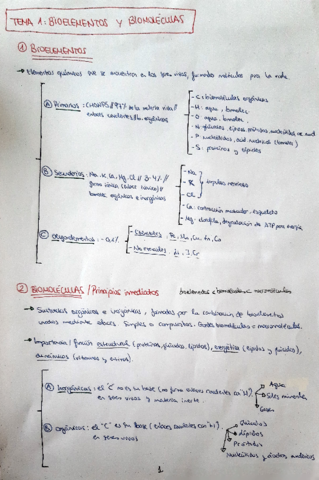 TEMA 1: BIOELEMENTOS Y BIOMOLÉCULAS
① BIOELEMENTOS
→ Elementos químicos que se encuentran en los seres vivos, formando moléculas para la vida.
Ⓐ Primarios: CHONPS // 97% de la materia viva //
enlaces covalentes // orgánicos
- C: biomoléculas orgánicas
- H: agua,
- O: agua,
- N: proteínas, ácidos nucleicos
- P: nucleótidos, ácidos nucleicos
- S: proteínas y lípidos
Ⓑ Secundarios: Na, K, Ca, Mg, Cl // 3-4% //
forma iónica
orgánicos e inorgánicos
- Na
- K
- Cl
impulso nervioso
- Ca: contracción muscular, esqueleto
- Mg: clorofila, degradación de ATP para energía
Ⓒ Oligoelementos: -0,1%
- Esenciales: Fe, Cu, Zn, Co
- No esenciales: Li, I, Cr
② BIOMOLÉCULAS / Principios inmediatos
→ Sustancias orgánicas e inorgánicas, formadas por la combinación de bioelementos
unidos mediante enlaces. Simples o compuestas.
→ Importancia / función estructural (proteínas, glúcidos, lípidos), energética (lípidos y glúcidos),
dinámicas
Ⓐ Inorgánicas: el "C" no es su base (no forma enlaces covalentes con "H"),
en seres vivos y materia inerte
Agua
Sales minerales
Gases
Ⓑ Orgánicas: el "C" es su base (enlaces covalentes con "H"),
en seres vivos
Glúcidos
Lípidos
Proteínas
Nucleótidos y ácidos nucleicos
1